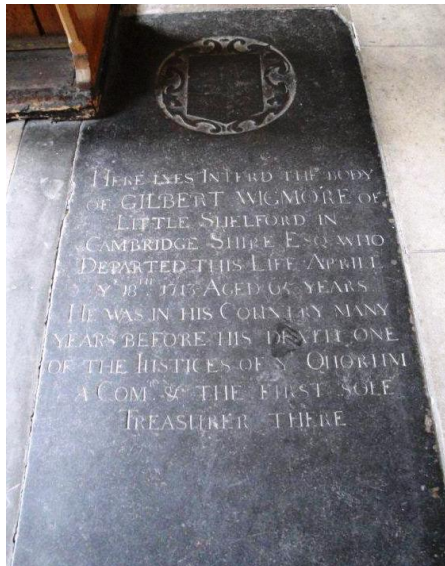 HERE LYES INTERD THE BODY
OF GILBERT WIGMORE OF
LITTLE SHELFORD IN
CAMBRIDGE SHIRE ESQ WHO
DEPARTED THIS LIFE APRILL
Yᵉ 18ᵀᴴ 1713 AGED 65 YEARS
HE WAS IN HIS COUNTRY MANY
YEARS BEFORE HIS DEATH ONE
OF THE IUSTICES OF Yᵉ QUORUM
A COM. & THE FIRST SOLE
TREASURER THERE